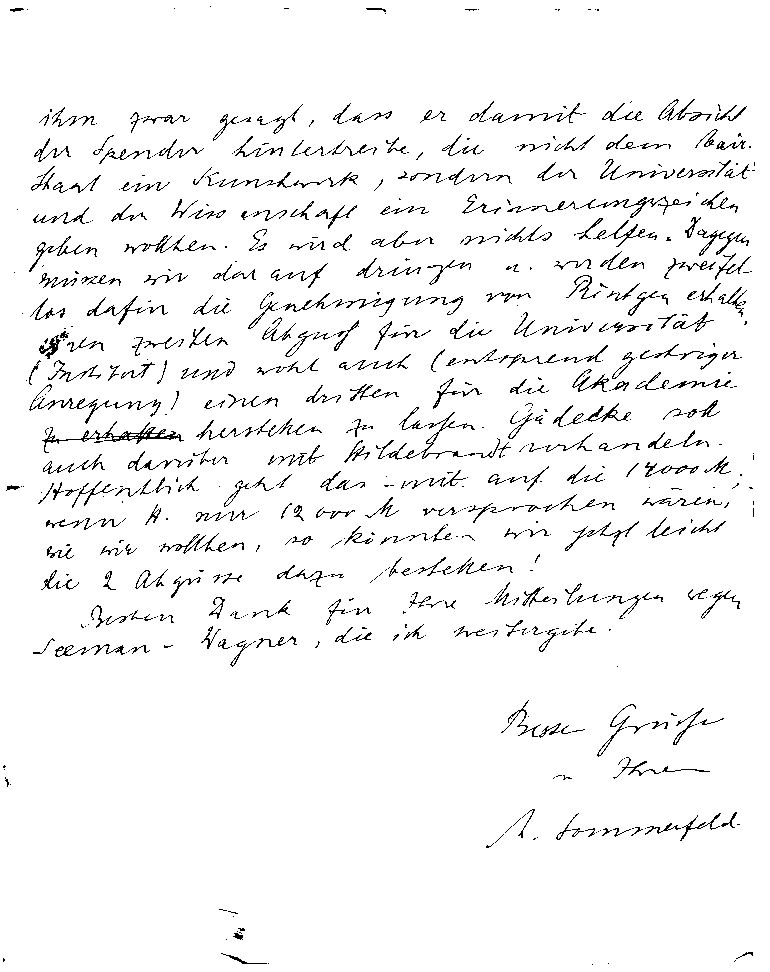 ihm zwar gesagt, dass er damit die Absicht
der Spender hintertreibe, die nicht dem bair.
Staat ein Kunstwerk, sondern der Universität
und der Wissenschaft ein Erinnerungszeichen
geben wollten. Es wird aber nichts helfen. Dagegen
müssen wir darauf dringen u. werden zweifel-
los dafür die Genehmigung von Röntgen erhalten,
einen zweiten Abguß für die Universität
(Institut) und wohl auch (entsprend gestriger
Anregung) einen dritten für die Akademie
zu erhalten herstellen zu lassen. Gädecke soll
auch darüber mit Hildebrandt verhandeln.
Hoffentlich geht das mit auf die 14000 M;
wenn H. nur 12000 M versprochen wären,
wie wir wollten, so könnten wir jetzt leicht
die 2 Abgüsse dazu bestellen!
Besten Dank für Ihre Mitteilungen wegen
Seeman-Wagner, die ich weitergebe.
Beste Grüße
Ihr
A. Sommerfeld